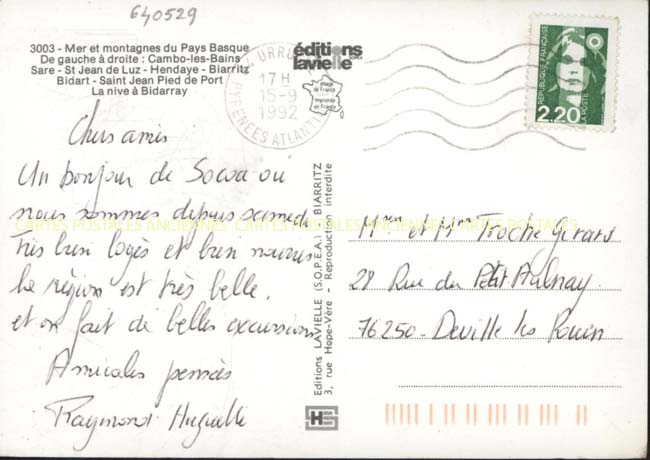 640529
3003 - Mer et montagnes du Pays Basque
De gauche à droite : Cambo-les-Bains
Sare - St Jean de Luz - Hendaye - Biarritz
Bidart - Saint Jean Pied de Port
La nive à Bidarray
éditions
lavielle
Image
de France
Imprimée
en France
URRU
17 H
15-9
1992
PYRENEES ATLANTI
REPUBLIQUE FRANÇAISE
LA POSTE
2,20
Chers amis
Un bonjour de Socoa où
nous sommes depuis samedi
très bien logés et bien nourris
la région est très belle,
et on fait de belles excursions
Amicales pensées
Raymond Huguette
CARTES POSTALES ANCIENNES CARTES POSTALES ANCIENNES CARTES POSTALES
Editions LAVIELLE (S.O.P.E.A.) BIARRITZ
3, rue Hope-Vère - Reproduction interdite
Mr et Mme Troche Gérard
28 Rue du Petit Aulnay
76250 - Deville les Rouen